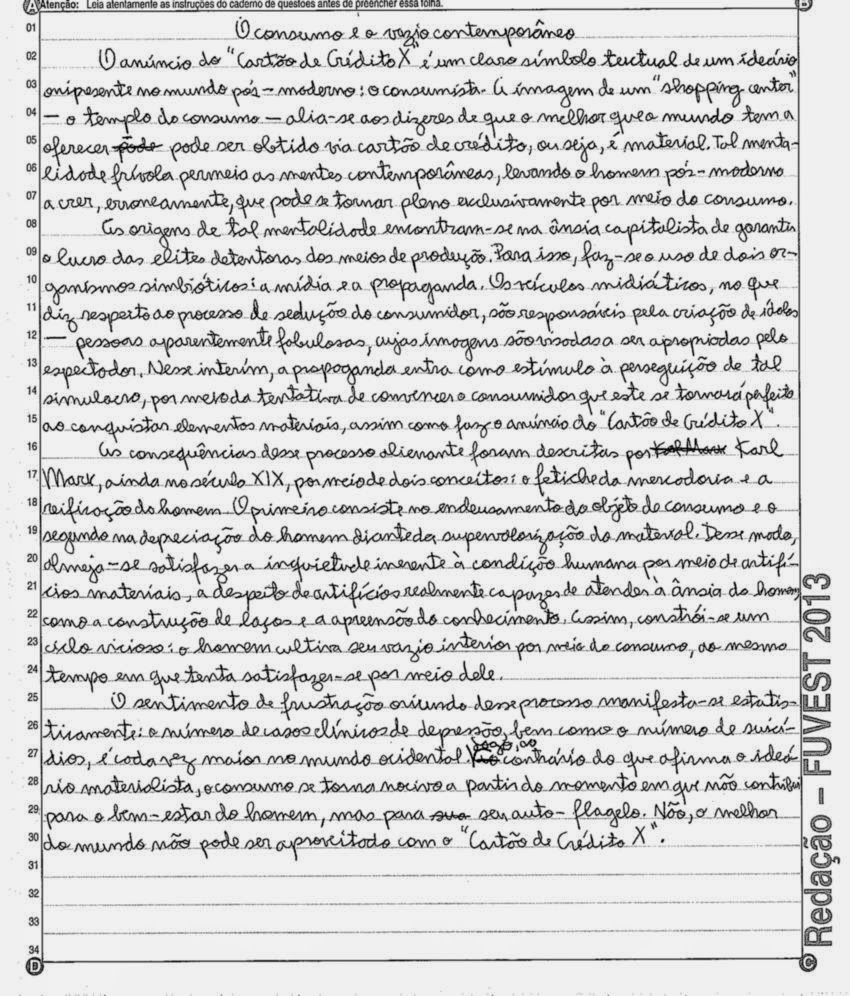 Atenção: Leia atentamente as instruções do caderno de questões antes de preencher essa folha.
A
B
01 O consumo e o vazio contemporâneo
02 O anúncio do "Cartão de Crédito X" é um claro símbolo textual de um ideário
03 onipresente no mundo pós-moderno: o consumista. A imagem de um "shopping center"
04 — o templo do consumo — alia-se aos dizeres de que o melhor que o mundo tem a
05 oferecer pode pode ser obtido via cartão de crédito, ou seja, é material. Tal menta-
06 lidade frívola permeia as mentes contemporâneas, levando o homem pós-moderno
07 a crer, erroneamente, que pode se tornar pleno exclusivamente por meio do consumo.
08 As origens de tal mentalidade encontram-se na ânsia capitalista de garantir
09 o lucro das elites detentoras dos meios de produção. Para isso, faz-se o uso de dois or-
10 ganismos simbióticos: a mídia e a propaganda. Os veículos midiáticos, no que
11 diz respeito ao processo de sedução do consumidor, são responsáveis pela criação de ídolos
12 — pessoas aparentemente fabulosas, cujas imagens são visadas a ser apropriadas pelo
13 espectador. Nesse interim, a propaganda entra como estímulo à perseguição de tal
14 simulacro, por meio da tentativa de convencer o consumidor que este se tornará perfeito
15 ao conquistar elementos materiais, assim como faz o anúncio do "Cartão de Crédito X".
16 As consequências desse processo alienante foram descritas por Karl Marx Karl
17 Marx, ainda no século XIX, por meio de dois conceitos: o fetiche da mercadoria e a
18 reificação do homem. O primeiro consiste no endeusamento do objeto de consumo e o
19 segundo na depreciação do homem diante da supervalorização do material. Desse modo,
20 almeja-se satisfazer a inquietude inerente à condição humana por meio de artifí-
21 cios materiais, a despeito de artifícios realmente capazes de atender à ânsia do homem,
22 como a construção de laços e a apreensão do conhecimento. Assim, constrói-se um
23 ciclo vicioso: o homem cultiva seu vazio interior por meio do consumo, ao mesmo
24 tempo em que tenta satisfazer-se por meio dele.
25 O sentimento de frustração oriundo desse processo manifesta-se estatis-
26 ticamente: o número de casos clínicos de depressão, bem como o número de suicí-
27 dios, é cada vez maior no mundo ocidental. Logo, ao contrário do que afirma o ideá-
28 rio materialista, o consumo se torna nocivo a partir do momento em que não contribui
29 para o bem-estar do homem, mas para sua seu auto-flagelo. Não, o melhor
30 do mundo não pode ser aproveitado com o "Cartão de Crédito X".
31
32
33
34
D
C
Redação – FUVEST 2013